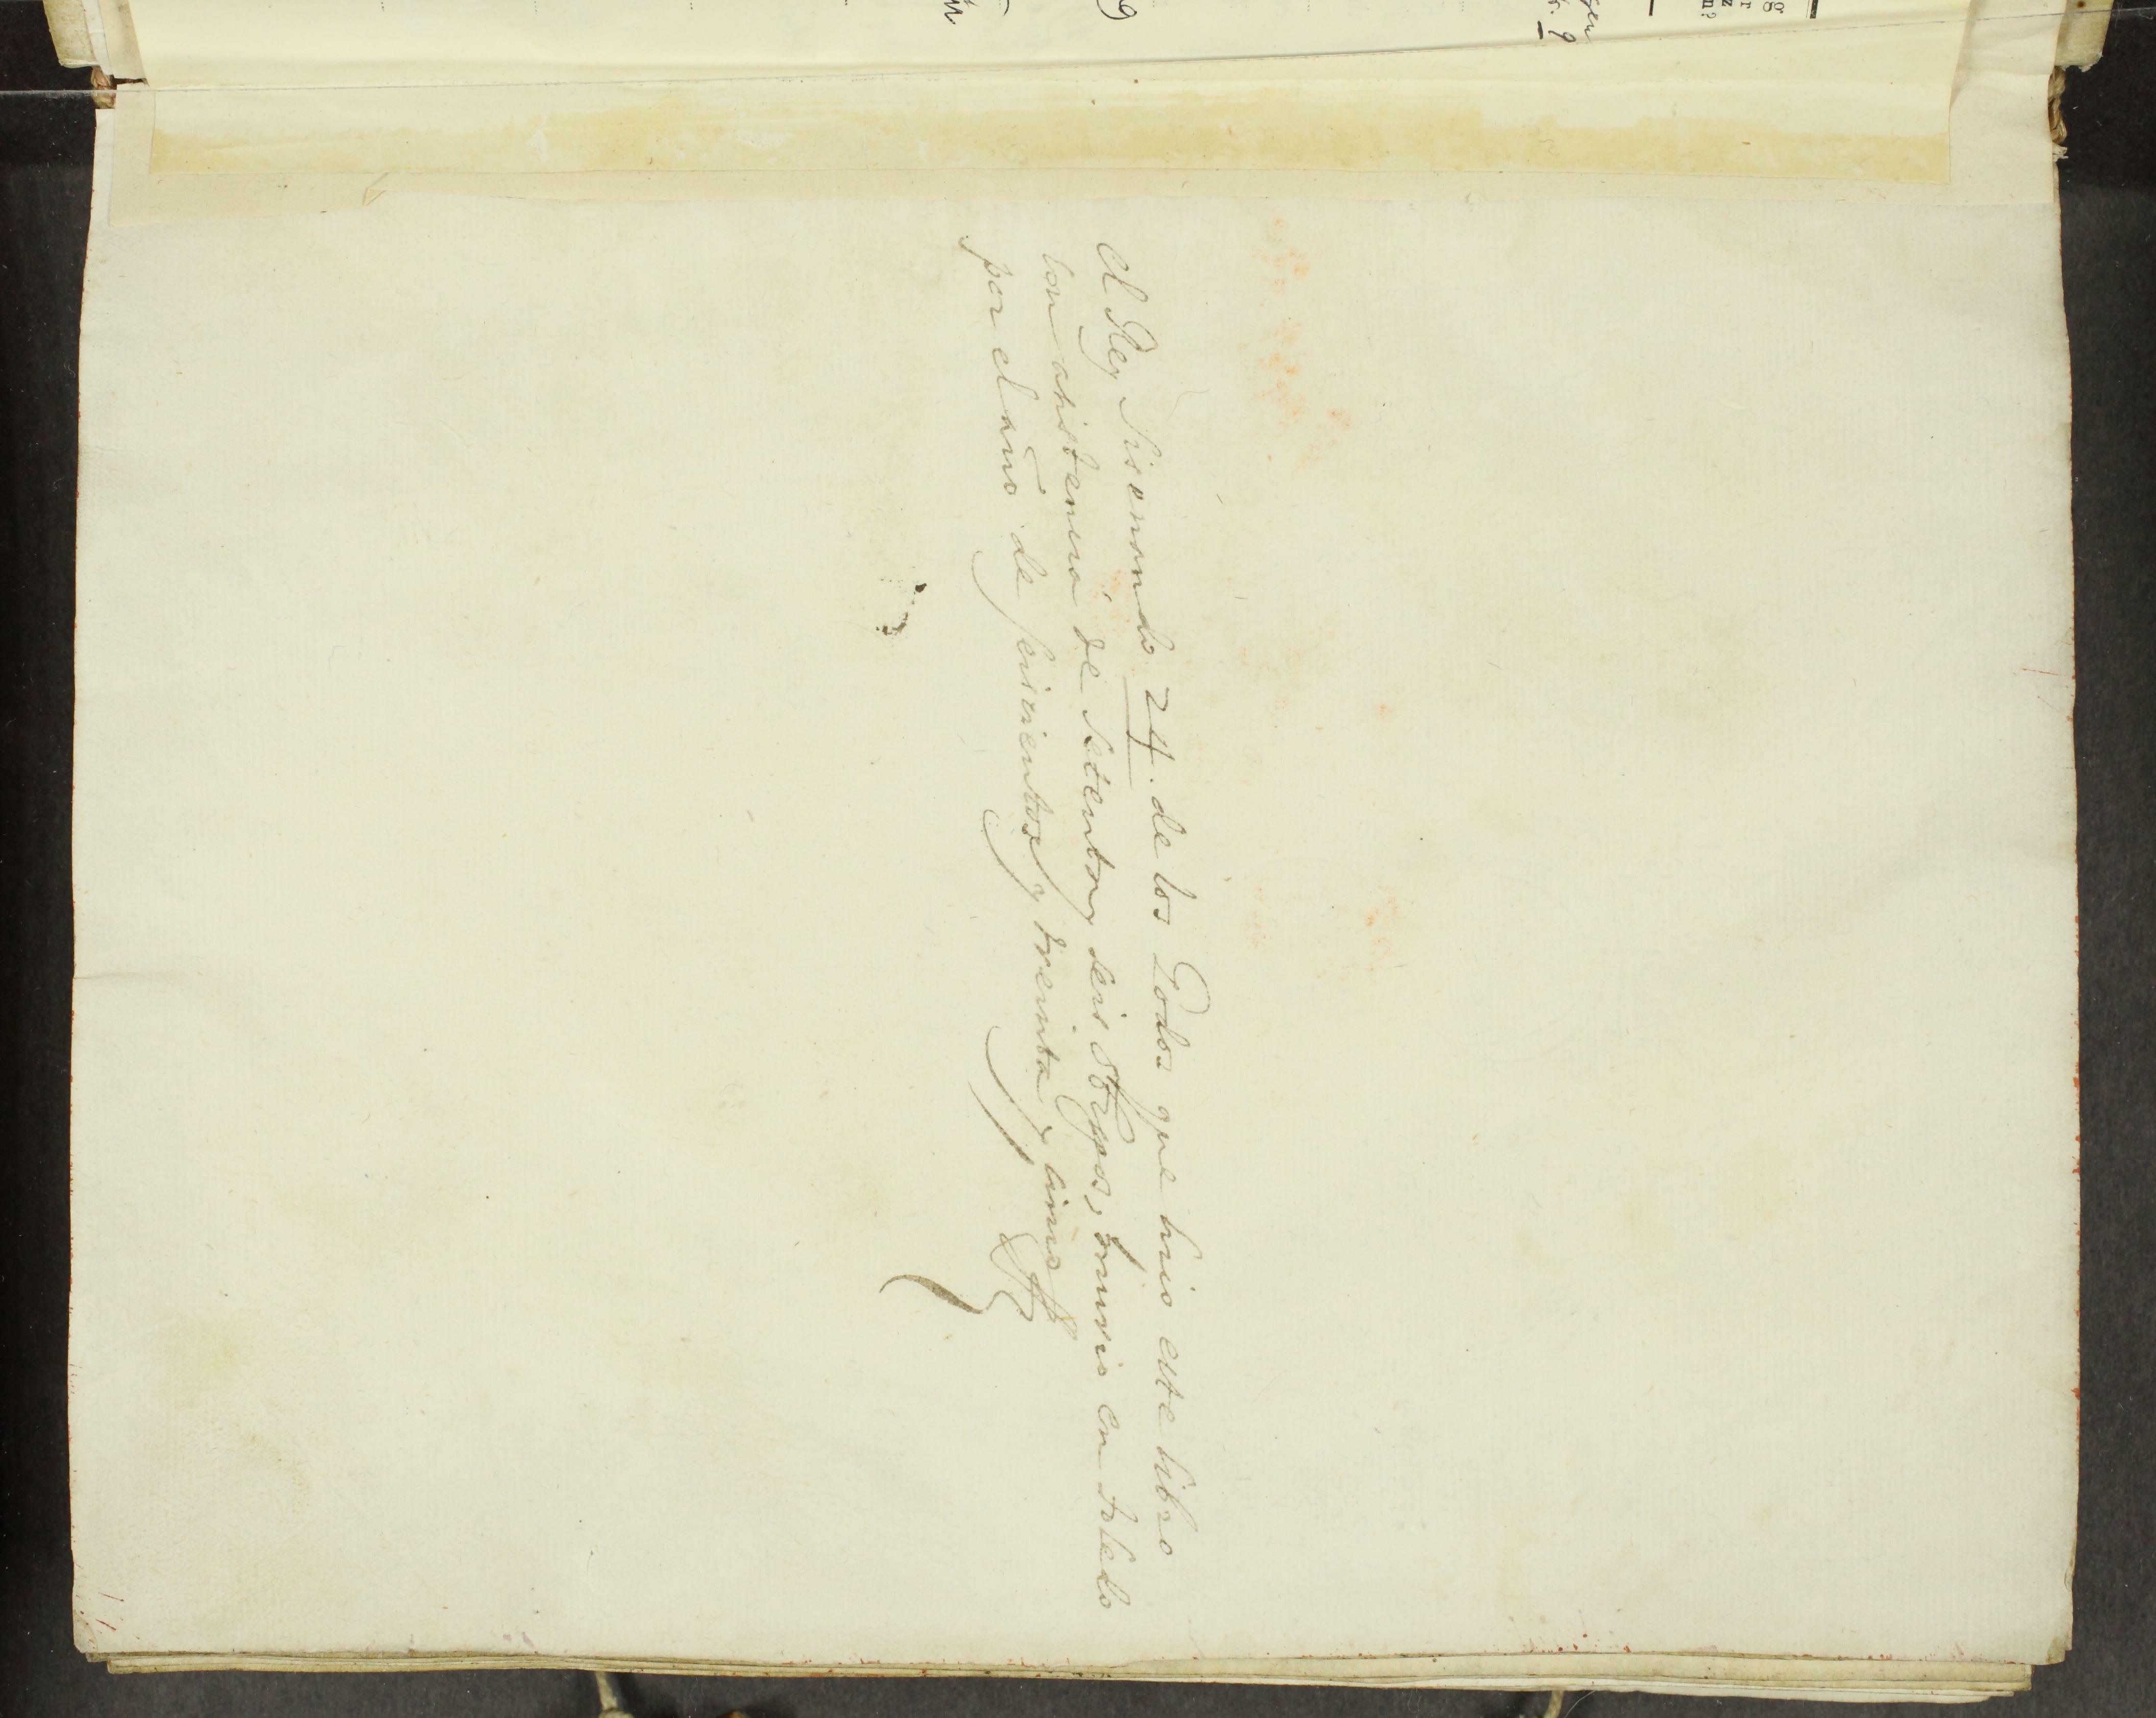 el Rey Sisenando 24. de los Godos que hizo este libro
con asistencia de setenta y seis Obispos, murio en Toledo
por el año de seiscientos y treinta y cinco